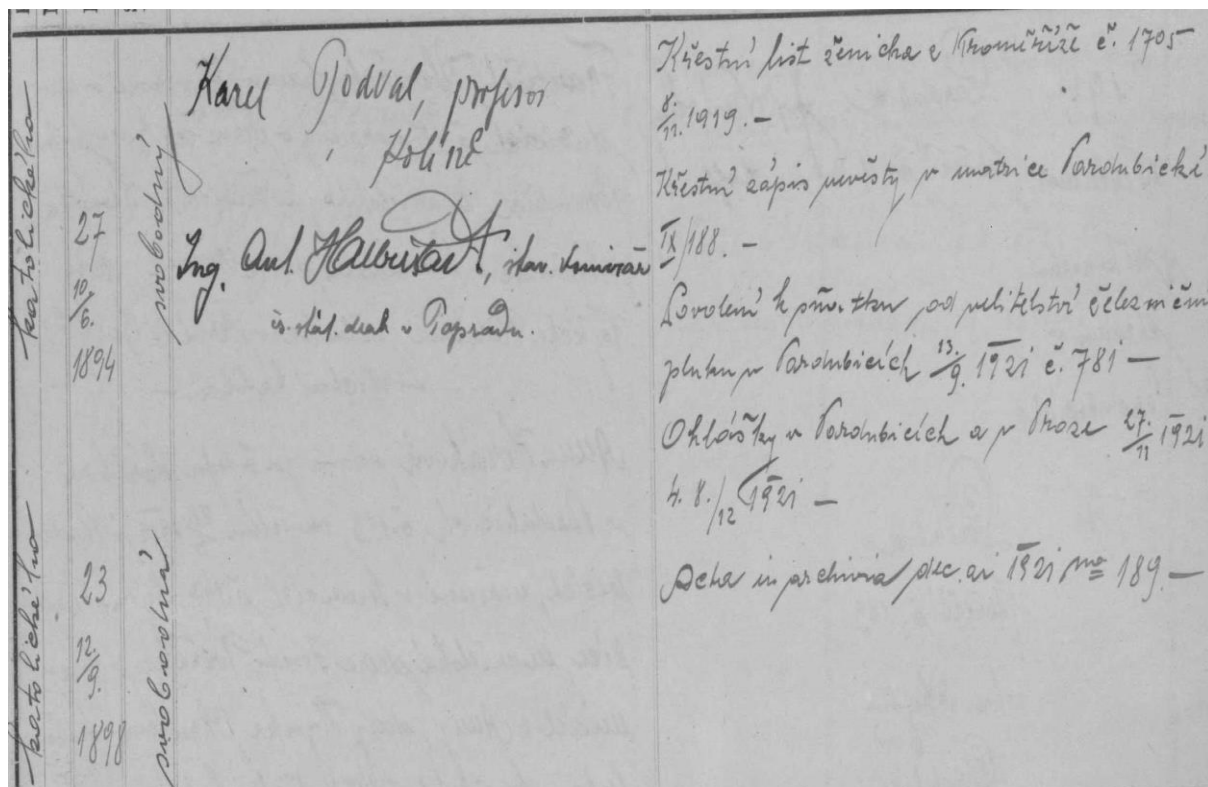 katolického
27
10/6.
1894
svobodný
Karel Podval, profesor
Holíně
Ing. Ant. , stav. komisař
čs. stát. drah v Popradu.
katolického
23
12/9.
1898
svobodná
Křestní list ženicha z Kroměříže č. 1705
8/12. 1919. —
Křestní zápis nevěsty v matrice Pardubické
IX/188. —
Povolení k sňatku od velitelství železničního
pluku v Pardubicích 13./9. 1921 č. 781 —
Ohlášky v Pardubicích a v Praze 27./11 1921
4. 8./12 1921 —
Acta in archivia dec. ai 1921 no 189. —